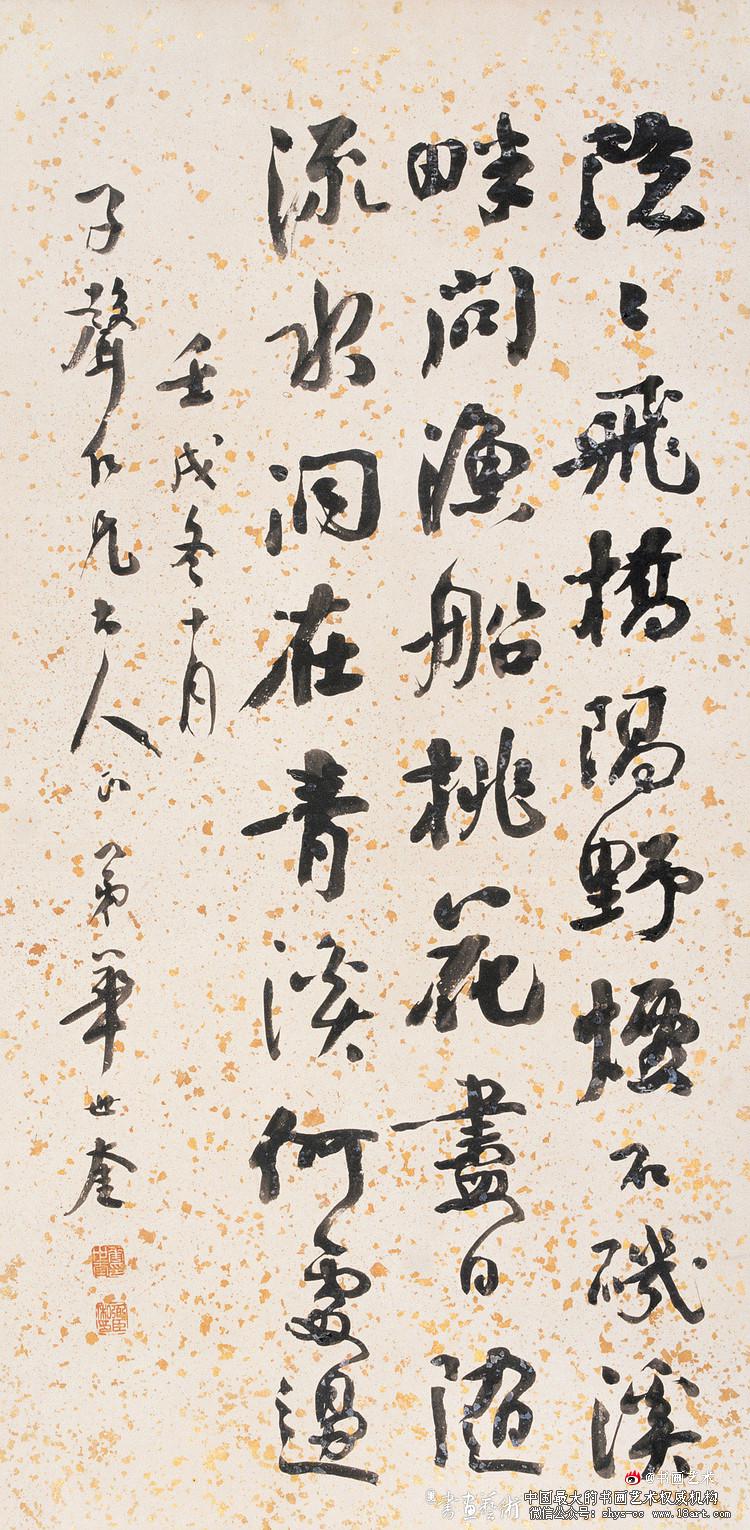 隱〻飛橋隔野煙石磯溪
畔問漁船桃花盡日隨
流水洞在青溪何處邊
壬戌冬十月
子聲仁兄大人正 弟華世奎
@书画艺术
書畫藝術
中国最大的书画艺术权威机构
微信公众号：shys-cc www.18art.com